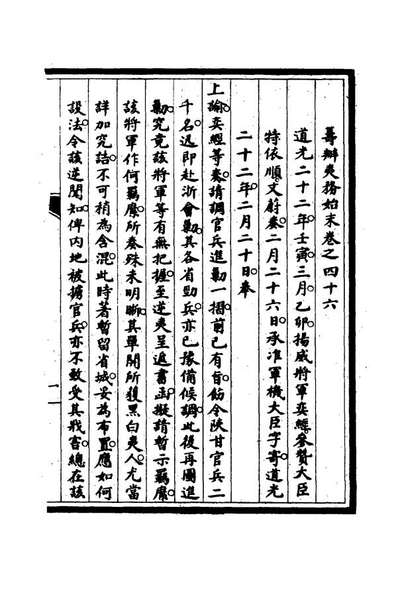 籌辦夷務始末卷之四十六
道光二十二年壬寅三月乙卯揚威將軍奕經參贊大臣
特依順文蔚奏二月二十六日承准軍機大臣字寄道光
二十二年二月二十日奉
上諭奕經等奏請調官兵進勦一摺前已有旨飭令陝甘官兵二
千名迅即赴浙會勦其各省勁兵亦已豫備候調此後再圖進
勦究竟該將軍等有無把握至逆夷呈遞書函擬請暫示羈縻
該將軍作何羈縻所奏殊未明晰其單開所獲黑白夷人尤當
詳加究詰不可稍為含混此時著暫留省城妥為布置應如何
設法令該逆聞知俾內地被擄官兵亦不致受其戕害總在該